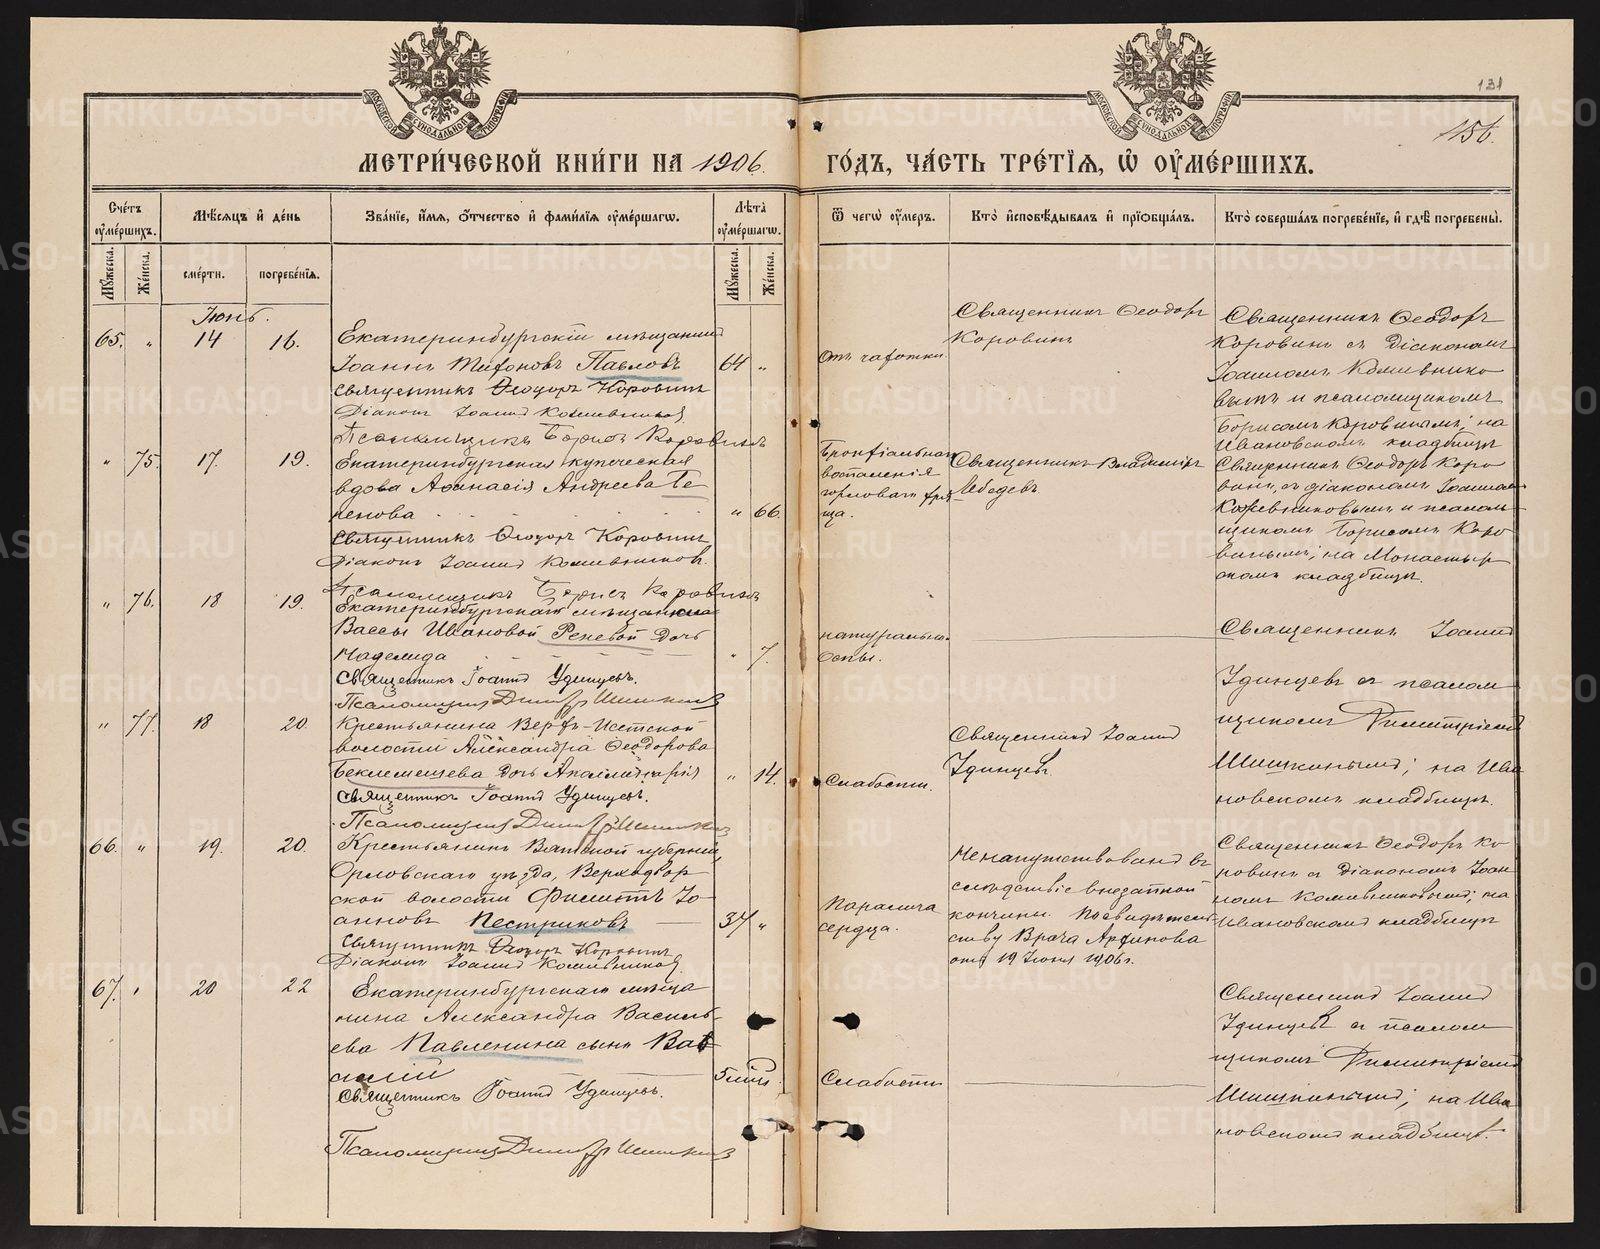 131
156.
МЕТРИ́ЧЕСКОЙ КНИ́ГИ НА 1906. ГО́ДЪ, ЧА́СТЬ ТРЕ́ТЇѦ, Ѡ҆ ОУ҆МЕ́РШИХЪ.
Сче́тъ оу҆ме́ршихъ.
Мѣ́сѧцъ и҆ де́нь
Зва́нїе, и҆́мѧ, ѻ҆́тчество и҆ фами́лїѧ оу҆ме́ршагѡ.
Лѣта̀ оу҆ме́ршагѡ.
Ѿ чегѡ̀ оу҆́меръ.
Кто̀ и҆сповѣ́дывалъ и҆ прїѡбща́лъ.
Кто̀ соверша́лъ погребе́нїе, и҆ гдѣ̀ погребены̀.
Мꙋ́жеска.
Же́нска.
сме́рти.
погребе́нїѧ.
Мꙋ́жеска.
Же́нска.
Іюнь.
65. " 14 16.
Екатеринбургскій мѣщанинъ
Іоаннъ Тихоновъ Павловъ 64 "
Священникъ Ѳеодоръ Коровинъ
Діаконъ Іоаннъ Кожевниковъ
Псаломщикъ Борисъ Коровинъ
Отъ чахотки.
Священникъ Ѳеодоръ
Коровинъ
Священникъ Ѳеодоръ
Коровинъ съ діакономъ
Іоанномъ Кожевнико
вымъ и псаломщикомъ
Борисомъ Коровинымъ; на
Ивановскомъ кладбищѣ
" 75. 17. 19.
Екатеринбургская купеческая
вдова Аѳанасія Андреева Те
ренова " 66.
Священникъ Ѳеодоръ Коровинъ
Діаконъ Іоаннъ Кожевниковъ.
Псаломщикъ Борисъ Коровинъ
Бронхіальнаго
воспаленія
горловаго хря
ща.
Священникъ Владиміръ
Лебедевъ.
Священникъ Ѳеодоръ Коро
винъ, съ діакономъ Іоанномъ
Кожевниковымъ и псалом
щикомъ Борисомъ Коро
винымъ; на Монастыр
скомъ кладбищѣ.
" 76. 18 19.
Екатеринбургской мѣщанки
Вассы Ивановой Реневой дочь
Надежда " 7.
Священникъ Іоаннъ Удинцевъ.
Псаломщикъ Димитр Шишкинъ
натуральн.
оспы.
Священникъ Іоаннъ
Удинцевъ съ псалом
щикомъ Димитріемъ
Шишкинымъ; на Ива
новскомъ кладбищѣ.
" 77. 18 20.
Крестьянина Верхъ-Исетской
волости Александра Ѳеодорова
Беклемешева дочь Аполлинарія " 14.
Священникъ Іоаннъ Удинцевъ.
Псаломщикъ Димитр Шишкинъ
Слабости.
Священникъ Іоаннъ
Удинцевъ.
66. " 19. 20.
Крестьянинъ Вятской губерніи,
Орловскаго уѣзда, Верходвор
ской волости Филиппъ Іо
анновъ Пестриковъ 37 "
Священникъ Ѳеодоръ Коровинъ
Діаконъ Іоаннъ Кожевниковъ.
Паралича
сердца.
Ненапутствованъ въ
слѣдствіе внезапной
кончины. По свидѣтель
ству Врача Арфинова
отъ 19 Іюня 1906 г.
Священникъ Ѳеодоръ Ко
ровинъ съ діакономъ Іоан
номъ Кожевниковымъ; на
Ивановскомъ кладбищѣ
67. " 20 22
Екатеринбургскаго мѣща
нина Александра Василь
ева Павленина сынъ Ва
силій 5 мѣс.
Священникъ Іоаннъ Удинцевъ.
Псаломщикъ Димитр Шишкинъ
Слабости
Священникъ Іоаннъ
Удинцевъ съ псалом
щикомъ Димитріемъ
Шишкинымъ; на Ива
новскомъ кладбищѣ.
METRIKI.GASO-URAL.RU